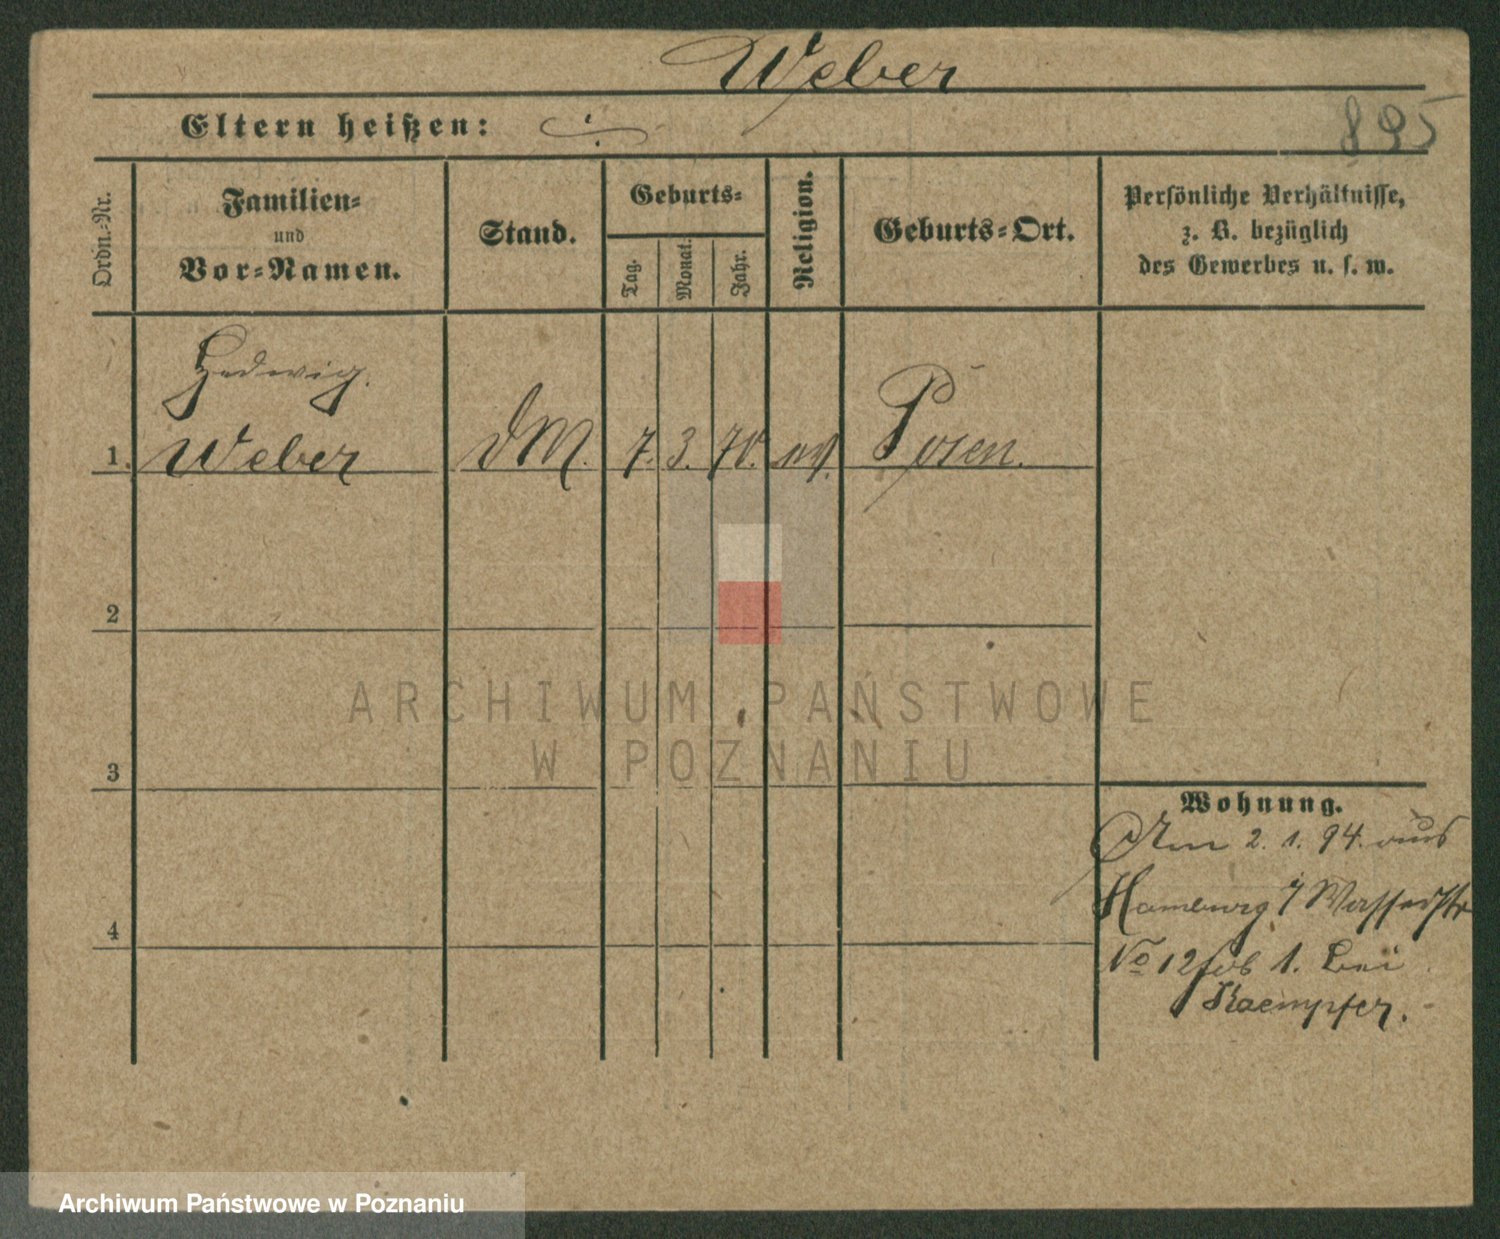 Weber
Eltern heißen:
895
Ordn.-Nr.
Familien-
und
Vor-Namen.
Stand.
Geburts-
Tag.
Monat.
Jahr.
Religion.
Geburts-Ort.
Persönliche Verhältnisse,
z. B. bezüglich
des Gewerbes u. s. w.
Hedwig.
1. Weber DM. 7. 3. 70. Posen.
2
3
4
Wohnung.
Am 2. 1. 94. aus
Hamburg / Wasserstr
No 12 1. bei
Kaempfer.
ARCHIWUM PAŃSTWOWE
W POZNANIU
Archiwum Państwowe w Poznaniu